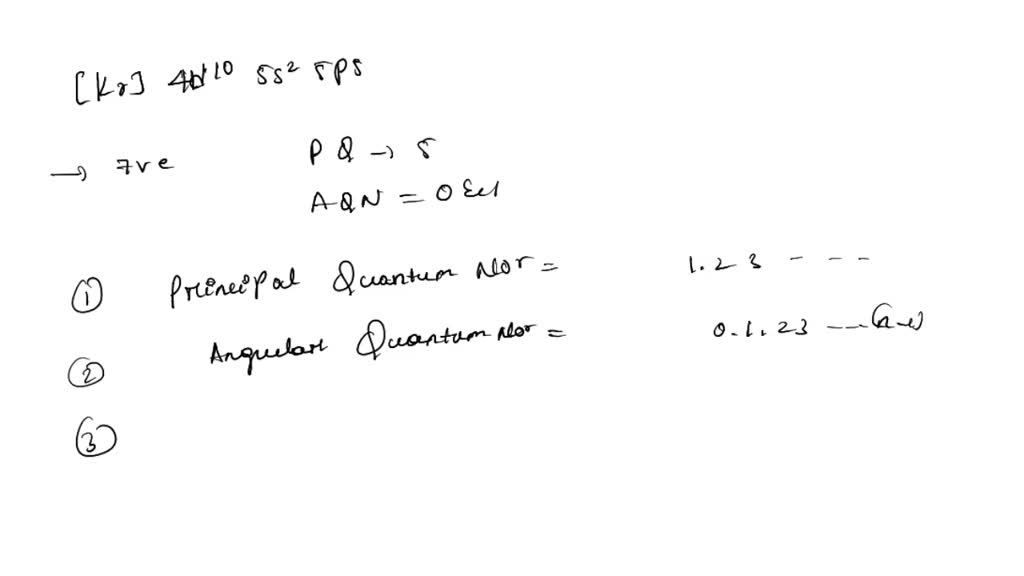 [Kr] 4d10 5s2 5p5
→ 7ve PQ → 5
AQN = 0 & 1
① Principal Quantum Nor = 1.23 - - -
② Angular Quantum Nor = 0.1.23 --- (n-1)
③